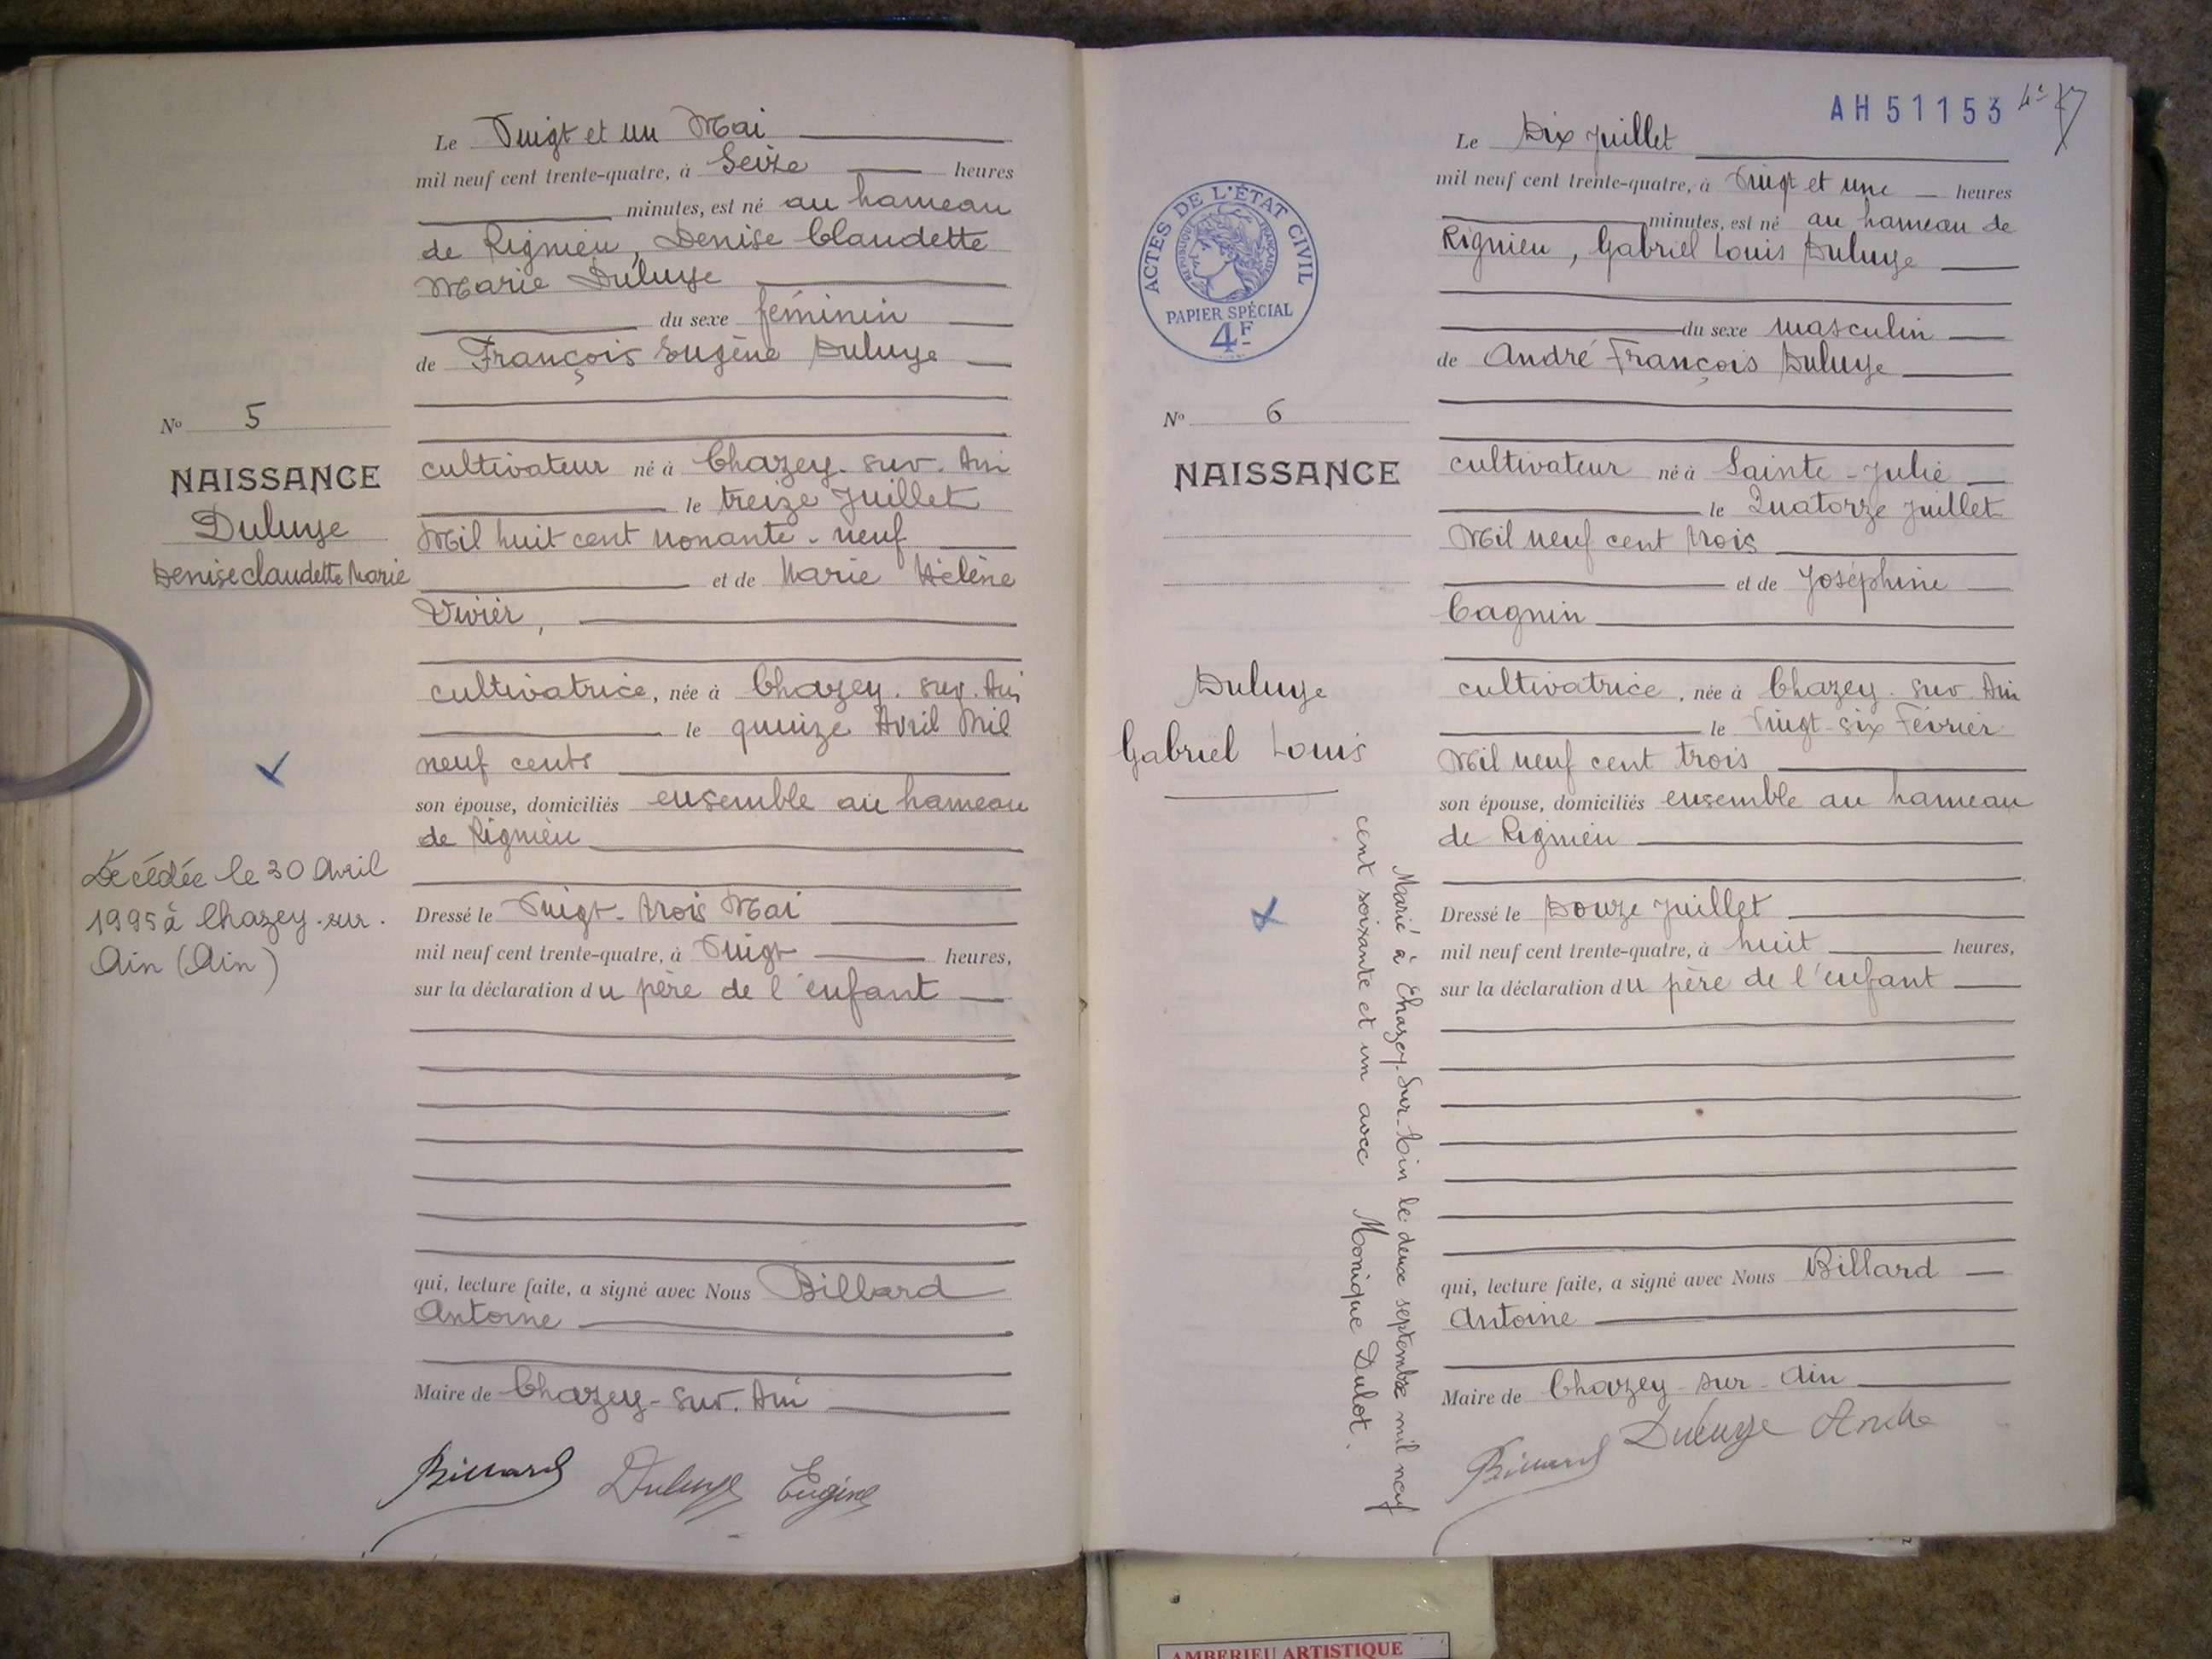 Le Vingt et un Mai
mil neuf cent trente-quatre, à Seize heures
minutes, est né au hameau
de Rignieu, Denise Claudette
Marie Duluye
du sexe féminin
de François Eugène Duluye
cultivateur né à Chazey-sur-Ain
le treize Juillet
Mil huit cent nonante-neuf
et de Marie Hélène
Vivier,
cultivatrice, née à Chazey-sur-Ain
le quinze Avril Mil
neuf cents
son épouse, domiciliés ensemble au hameau
de Rignieu
Dressé le Vingt-trois Mai
mil neuf cent trente-quatre, à Vingt heures,
sur la déclaration du père de l'enfant
qui, lecture faite, a signé avec Nous Billard
Antoine
Maire de Chazey-sur-Ain
Billard Duluye Eugène
No 5
NAISSANCE
Duluye
Denise Claudette Marie
Décédée le 30 Avril
1995 à Chazey-sur-
Ain (Ain)
AH51153
Le Dix Juillet
mil neuf cent trente-quatre, à Vingt et une heures
minutes, est né au hameau de
Rignieu, Gabriel Louis Duluye
du sexe masculin
de André François Duluye
cultivateur né à Sainte-Julie
le Quatorze Juillet
Mil neuf cent trois
et de Joséphine
Cagnin
cultivatrice, née à Chazey-sur-Ain
le Vingt-six Février
Mil neuf cent trois
son épouse, domiciliés ensemble au hameau
de Rignieu
Dressé le Douze Juillet
mil neuf cent trente-quatre, à huit heures,
sur la déclaration du père de l'enfant
qui, lecture faite, a signé avec Nous Billard
Antoine
Maire de Chazey-sur-Ain
Billard Duluye André
ACTES DE L'ÉTAT CIVIL
RÉPUBLIQUE FRANÇAISE
PAPIER SPÉCIAL
4F
No 6
NAISSANCE
Duluye
Gabriel Louis
Marié à Chazey-Sur-Ain le deux septembre mil neuf
cent soixante et un avec Monique Dulot.
AMBERIEU ARTISTIQUE